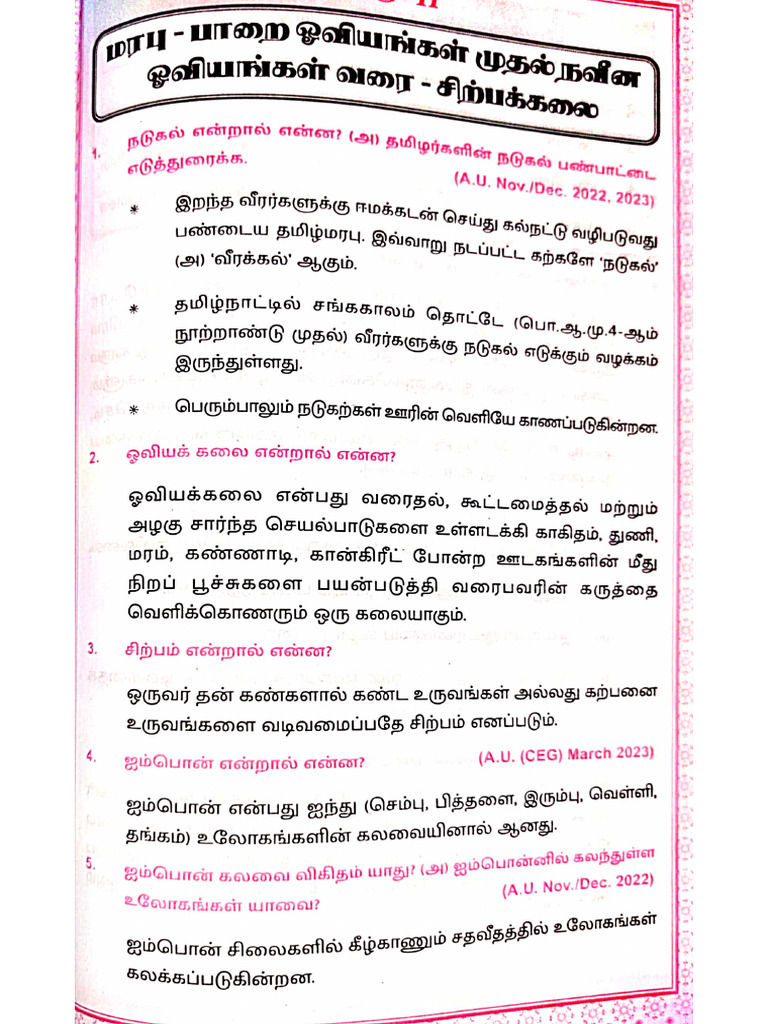 மரபு - பாறை ஓவியங்கள் முதல் நவீன
ஓவியங்கள் வரை - சிற்பக்கலை
1. நடுகல் என்றால் என்ன? (அ) தமிழர்களின் நடுகல் பண்பாட்டை
எடுத்துரைக்க. (A.U. Nov./Dec. 2022, 2023)
* இறந்த வீரர்களுக்கு ஈமக்கடன் செய்து கல்நட்டு வழிபடுவது
பண்டைய தமிழ்மரபு. இவ்வாறு நடப்பட்ட கற்களே 'நடுகல்'
(அ) 'வீரக்கல்' ஆகும்.
* தமிழ்நாட்டில் சங்ககாலம் தொட்டே (பொ.ஆ.மு.4-ஆம்
நூற்றாண்டு முதல்) வீரர்களுக்கு நடுகல் எடுக்கும் வழக்கம்
இருந்துள்ளது.
* பெரும்பாலும் நடுகற்கள் ஊரின் வெளியே காணப்படுகின்றன.
2. ஓவியக் கலை என்றால் என்ன?
ஓவியக்கலை என்பது வரைதல், கூட்டமைத்தல் மற்றும்
அழகு சார்ந்த செயல்பாடுகளை உள்ளடக்கி காகிதம், துணி,
மரம், கண்ணாடி, கான்கிரீட் போன்ற ஊடகங்களின் மீது
நிறப் பூச்சுகளை பயன்படுத்தி வரைபவரின் கருத்தை
வெளிக்கொணரும் ஒரு கலையாகும்.
3. சிற்பம் என்றால் என்ன?
ஒருவர் தன் கண்களால் கண்ட உருவங்கள் அல்லது கற்பனை
உருவங்களை வடிவமைப்பதே சிற்பம் எனப்படும்.
4. ஐம்பொன் என்றால் என்ன? (A.U. (CEG) March 2023)
ஐம்பொன் என்பது ஐந்து (செம்பு, பித்தளை, இரும்பு, வெள்ளி,
தங்கம்) உலோகங்களின் கலவையினால் ஆனது.
5. ஐம்பொன் கலவை விகிதம் யாது? (அ) ஐம்பொன்னில் கலந்துள்ள
உலோகங்கள் யாவை? (A.U. Nov./Dec. 2022)
ஐம்பொன் சிலைகளில் கீழ்காணும் சதவீதத்தில் உலோகங்கள்
கலக்கப்படுகின்றன.